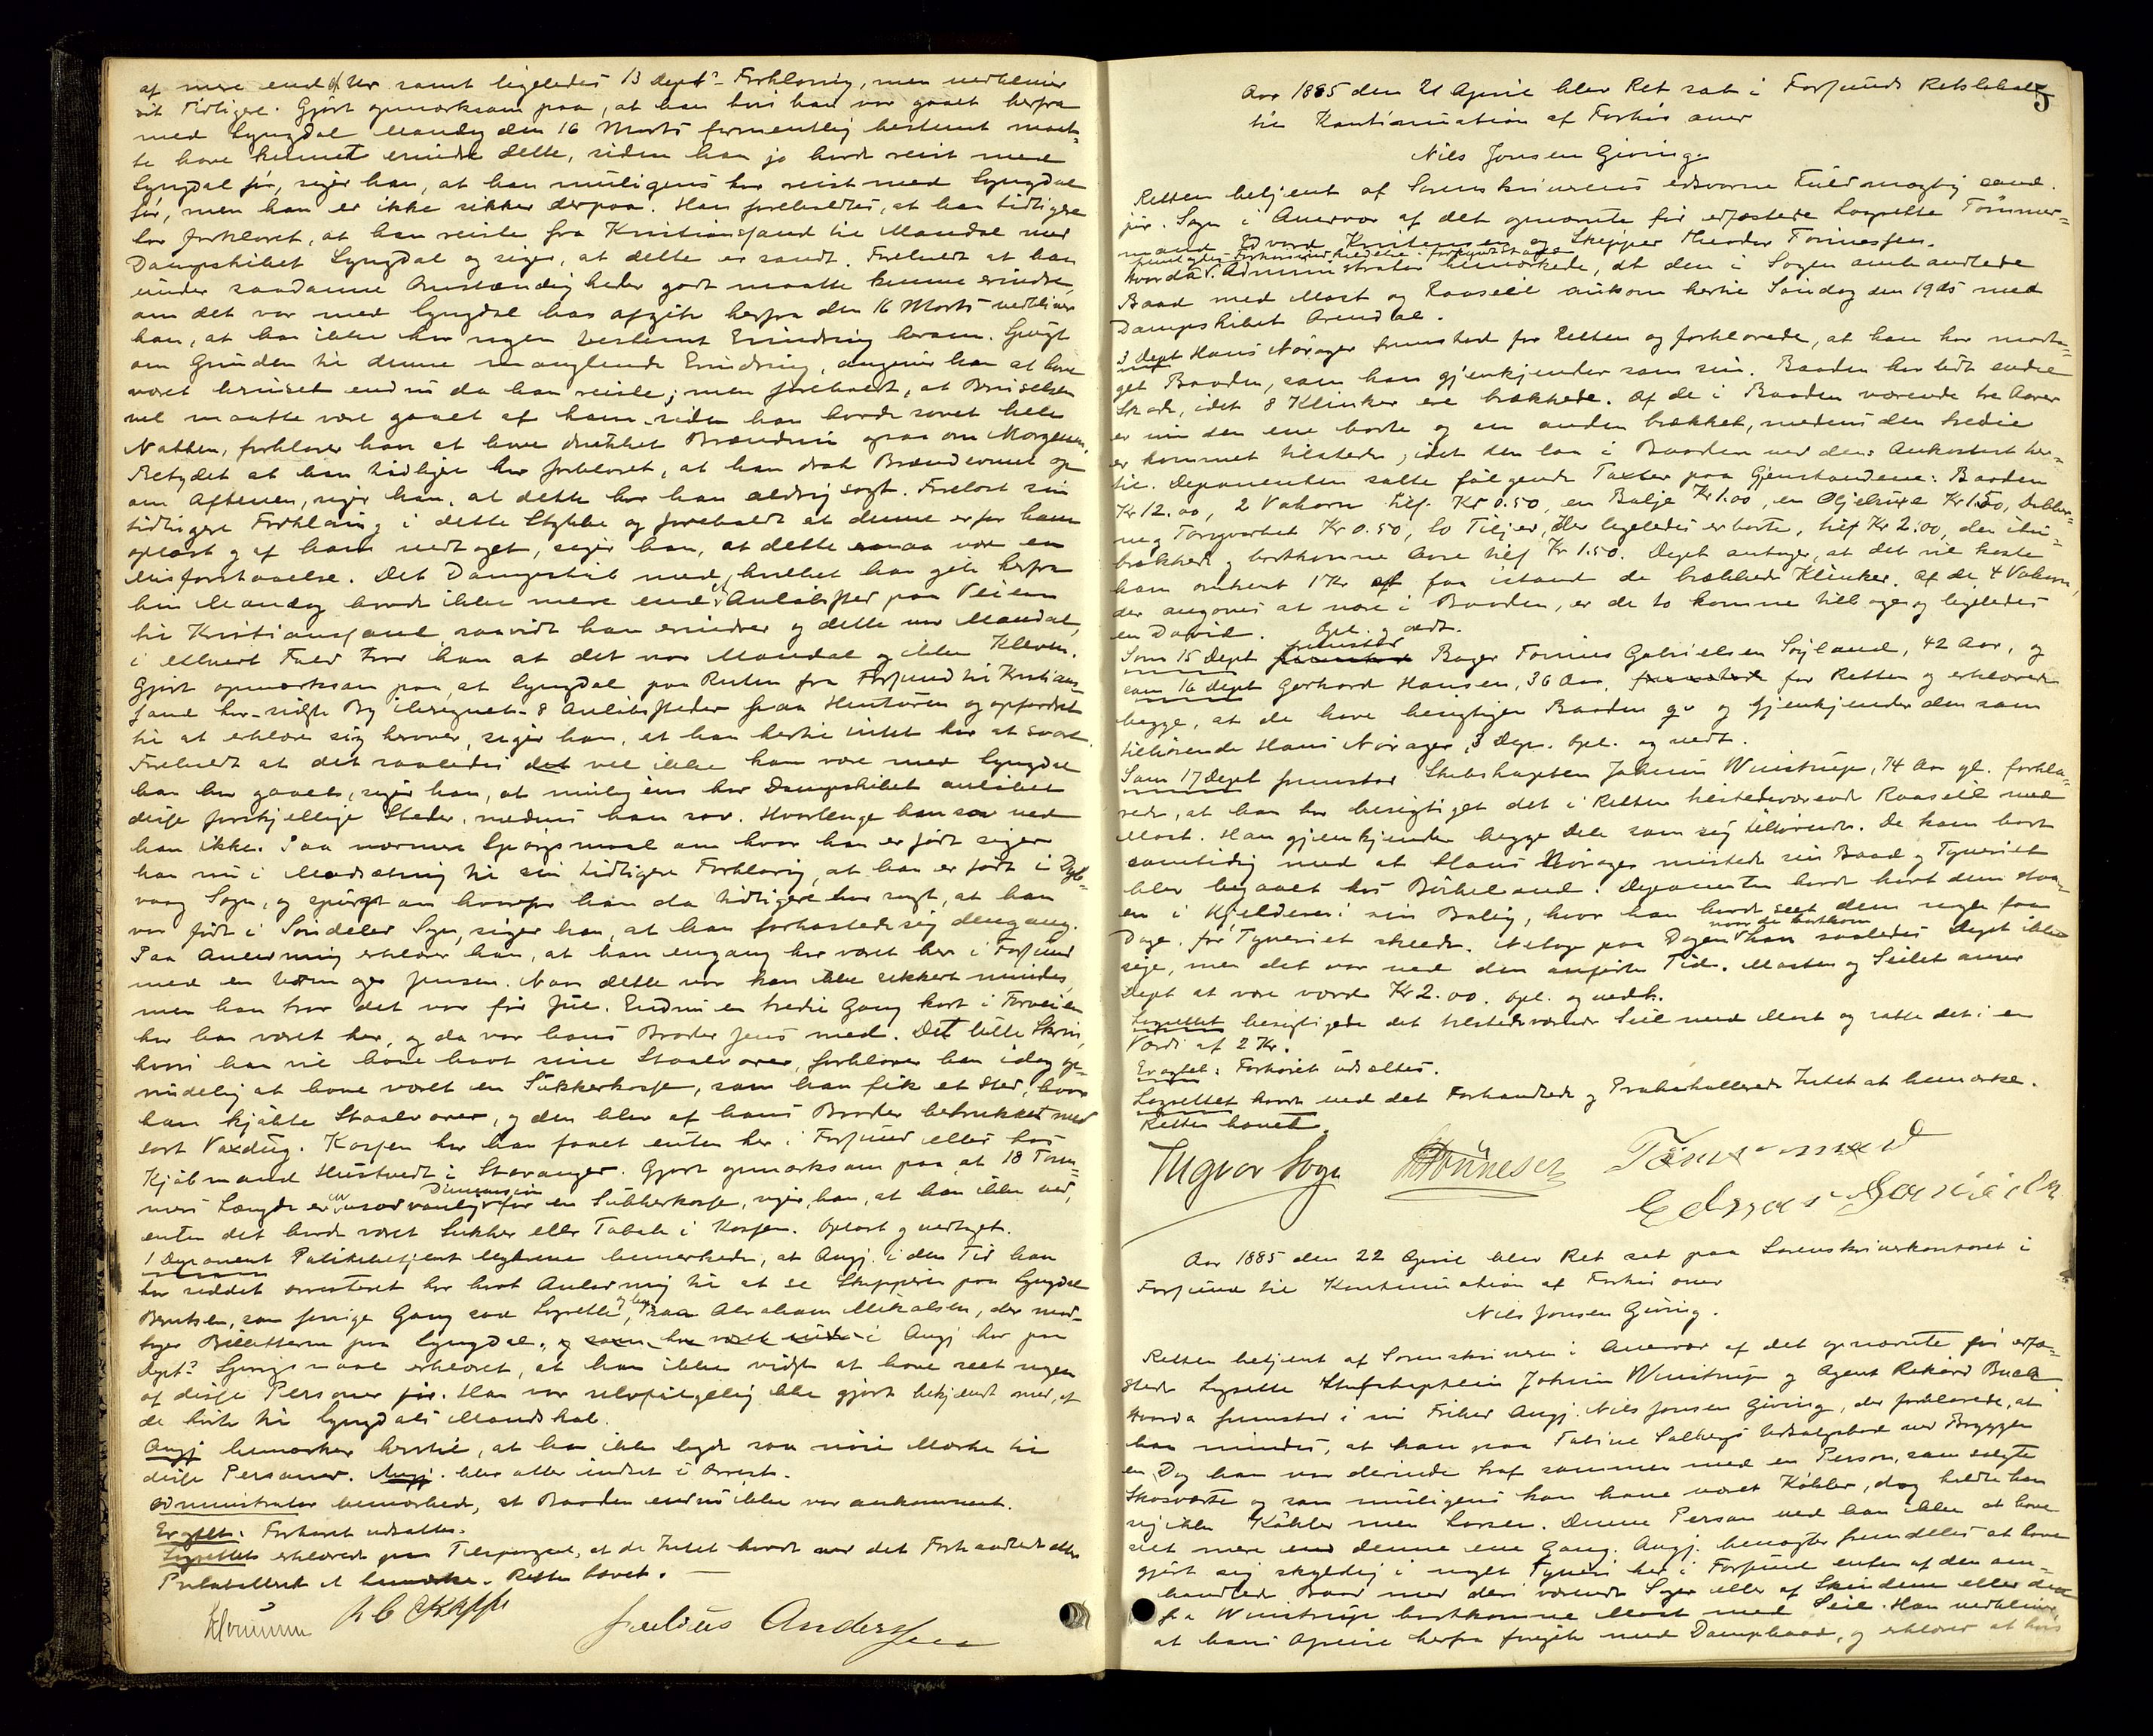 af mere end et Ur samt ligeledes 13 Dept's Forklaring, men vedbliver
sit Tidligere. Gjort opmærksom paa, at han hvis han var gaaet herfra
med Lyngdal Mandag den 16 Marts formentlig bestemt maat-
te have kunnet erindre dette, siden han jo havde reist med
Lyngdal før, siger han, at han muligens har reist med Lyngdal
før, men han er ikke sikker derpaa. Han foreholdtes, at han tidligere
har forklaret, at han reiste fra Kristianssand til Mandal med
Dampskibet Lyngdal og siger, at dette er sandt. Foreholdt at han
under saadanne Omstændigheder godt maatte kunne erindre,
om det var med Lyngdal han afgik herfra den 16 Marts vedbliver
han, at han ikke har nogen bestemt Erindring herom. Spurgt
om Grunden til denne manglende Erindring, angiver han at have
været beruset endnu da han reiste; men foreholdt, at Beruselsen
vel maatte være gaaet af ham, siden han havde sovet hele
Natten, forklarer han at have drukket Brændevin ogsaa om Morgenen.
Betydet at han tidligere har forklaret, at han drak Brændevinet op
om Aftenen, siger han, at dette har han aldrig sagt. Forelæst sin
tidligere Forklaring i dette Stykke og foreholdt at denne er for ham
oplæst og af ham vedtaget, siger han, at dette maa være en
Misforstaaelse. Det Dampskib med hvilket han gik herfra
hin Mandag havde ikke mere end et Anløbssted paa Veien
til Kristianssand saavidt han erindrer og dette var Mandal,
i ethvert Fald tror han at det var Mandal og ikke Kleven.
Gjort opmærksom paa, at Lyngdal paa Ruten fra Farsund til Kristians-
sand har sidste By iberegnet 8 Anløbssteder paa Henturen og opfordret
til at erklære sig herover, siger han, at han hertil intet har at svare.
Foreholdt at det saaledes det vel ikke kan være med Lyngdal
han har gaaet, siger han, at muligens har Dampskibet anløbet
disse forskjellige Steder, medens han sov. Hvorlenge han sov ved
han ikke. Paa nærmere Spørgsmaal om hvor han er født siger
han nu i Modsætning til sin tidligere Forklaring, at han er født i Dyb-
vaag Sogn, og spurgt om hvorfor han da tidligere har sagt, at han
var født i Søndeled Sogn, siger han, at han forhastede sig dengang.
Paa Anledning erklærer han, at han engang har været her i Farsund
med en Jensen. Naar dette var kan han ikke sikkert mindes,
men han tror det var før Jul. Endnu en tredie Gang kort i Forveien
har han været her, og da var hans Broder Jens med. Det lille Skrin,
hvori han vil have havt sine Staalvarer, forklarer han idag op-
rindelig at have været en Sukkerkasse, som han fik et Sted, hvor
han kjøbte Staalvarer, og den blev af hans Broder betrukket med
sort Voxdug. Kassen har han faaet enten her i Farsund eller hos
Kjøbmand Hustvedt i Stavanger. Gjort opmærksom paa at 18 Tom-
mers Længde er en usædvanlig Dimension for en Sukkerkasse, siger han, at han ikke ved,
enten det havde været Sukker eller Tobak i Kassen. Oplæst og vedtaget.
1 Deponent Politibetjent bemærkede, at Angj. i den Tid han
har siddet arresteret har havt Anledning til at se Skipperen paa Lyngdal
Berntsen, som forrige Gang var Lagrette, og Abraham Mikalsen, der mod-
tager Billetterne paa Lyngdal, og Angj har paa
Dept's Spørgsmaal erklæret, at han ikke vidste at have seet nogen
af disse Personer før. Han var selvfølgelig ikke gjort bekjendt med, at
de hørte til Lyngdals Mandskab.
Angj bemærker hertil, at han ikke lagde saa nøie Mærke til
disse Personer. Angj. blev atter indsat i Arrest.
Administrator bemærkede, at Baaden endnu ikke var ankommet.
Eragtet: Forhøret udsættes.
Lagrettet erklærede paa Tilspørgsel, at de Intet havde ved det Forhandlede eller
Protokollerede at bemærke. Retten hævet. —
Julius Anderssen

5
Aar 1885 den 21 April blev Ret sat i Farsunds Retslokale
til Kontinuation af Forhør over
Nils Jensen Giving.
Retten betjent af Sorenskriverens edsvorne Fuldmægtig cand.
jur. Sogn i Overvær af det opnævnte før edfæstede Lagrette Tømmer-
mand Edvard Knutsen og Skipper Theodor Tønnessen.
Hvorda Administrator bemærkede, at den i Sagen omhandlede
Baad med Mast og Raaseil ankom hertil Søndag den 19 ds med
Dampskibet Arendal.
3 Dept Hans Nørager fremstod for Retten og forklarede, at han har modta-
get Baaden, som han gjenkjender som sin. Baaden har lidt endel
Skade, idet 8 Klinker ere brækkede. Af de i Baaden værende tre Aarer
er nu den ene borte og en anden brækket, medens den tredie
er kommet tilstede, idet den laa i Baaden ved dens Ankomst her-
til. Deponenten satte følgende Taxter paa Gjenstandene: Baaden
Kr 12.00, 2 Vaborn tils. Kr 0.50, en Balje Kr 1.00, en Oljetrøie Kr 1.50,
Kr 0.50, to Tiljer, der ligeledes er borte, tils Kr 2.00, den itu-
brækkede og bortkomne Aare tils Kr 1.50. Dept antager, at det vil koste
ham omtrent 1 Kr at faa istand de brækkede Klinker. Af de 4 Vaborn,
der angaves at være i Baaden, er de to komne tilbage og ligeledes
en David. Opl. og vedt.
Som 15 Dept fremstod Bager Tønnes Gabrielsen Søyland, 42 Aar, og
som 16 Dept Gerhard Hansen, 36 Aar, for Retten og erklærede
begge, at de have besigtiget Baaden og gjenkjender den som
tilhørende Hans Nørager, 3 Dep. Opl. og vedt.
Som 17 Dept fremstod Skibskaptein Jokum Winstrup, 74 Aar gl. forkla-
rede, at han har besigtiget det i Retten tilstedeværende Raaseil med
Mast. Han gjenkjender begge Dele som sig tilhørende. De kom bort
samtidig med at Hans Nørager mistede sin Baad og Tyveriet
blev begaaet hos Birkeland. Deponenten havde havt dem staa-
en i Kjelderen i sin Bolig, hvor han havde seet dem nogle faa
Dage før Tyveriet skeede. Netop paa Dagen naar de bortkom kan saaledes Dept ikke
sige, men det var ved den anførte Tid. Masten og Seilet anser
Dept at være værd Kr 2.00. Opl. og vedt.
Lagrettet besigtigede det tilstedeværende Seil med Mast og satte det i en
Værdi af 2 Kr.
Eragtet: Forhøret udsættes.
Lagrettet havde ved det Forhandlede og Protokollerede Intet at bemærke.
Retten hævet.
Ingvar Sogn TTønnesen

Aar 1885 den 22 April blev Ret sat paa Sorenskriverkontoret i
Farsund til Kontinuation af Forhør over
Nils Jonsen Giving.
Retten betjent af Sorenskriveren i Overvær af det opnævnte før edfæ-
stede Lagrette Skibskaptein Jokum Winstrup og Agent Rikard Buch
Hvorda fremstod i sin Frihed Angj. Nils Jonsen Giving, der forklarede, at
han mindes, at han paa Tobine Salbergs Udsalgsbod ved Bryggen
en Dag han var derinde traf sammen med en Person, som solgte
Skosværte og som muligens kan have været Køhler, dog kaldte han
sig ikke Køhler men Larsen. Denne Person ved han ikke at have
seet mere end denne ene Gang. Angj. benægter fremdeles at have
gjort sig skyldig i noget Tyveri her i Farsund enten af den om-
handlede Baad med deri værende Sager eller af Skindene eller det
fra Winstrup bortkomne Mast med Seil. Han vedbliver,
at hans Afreise herfra foregik med Dampbaad, og erklærer at hvis